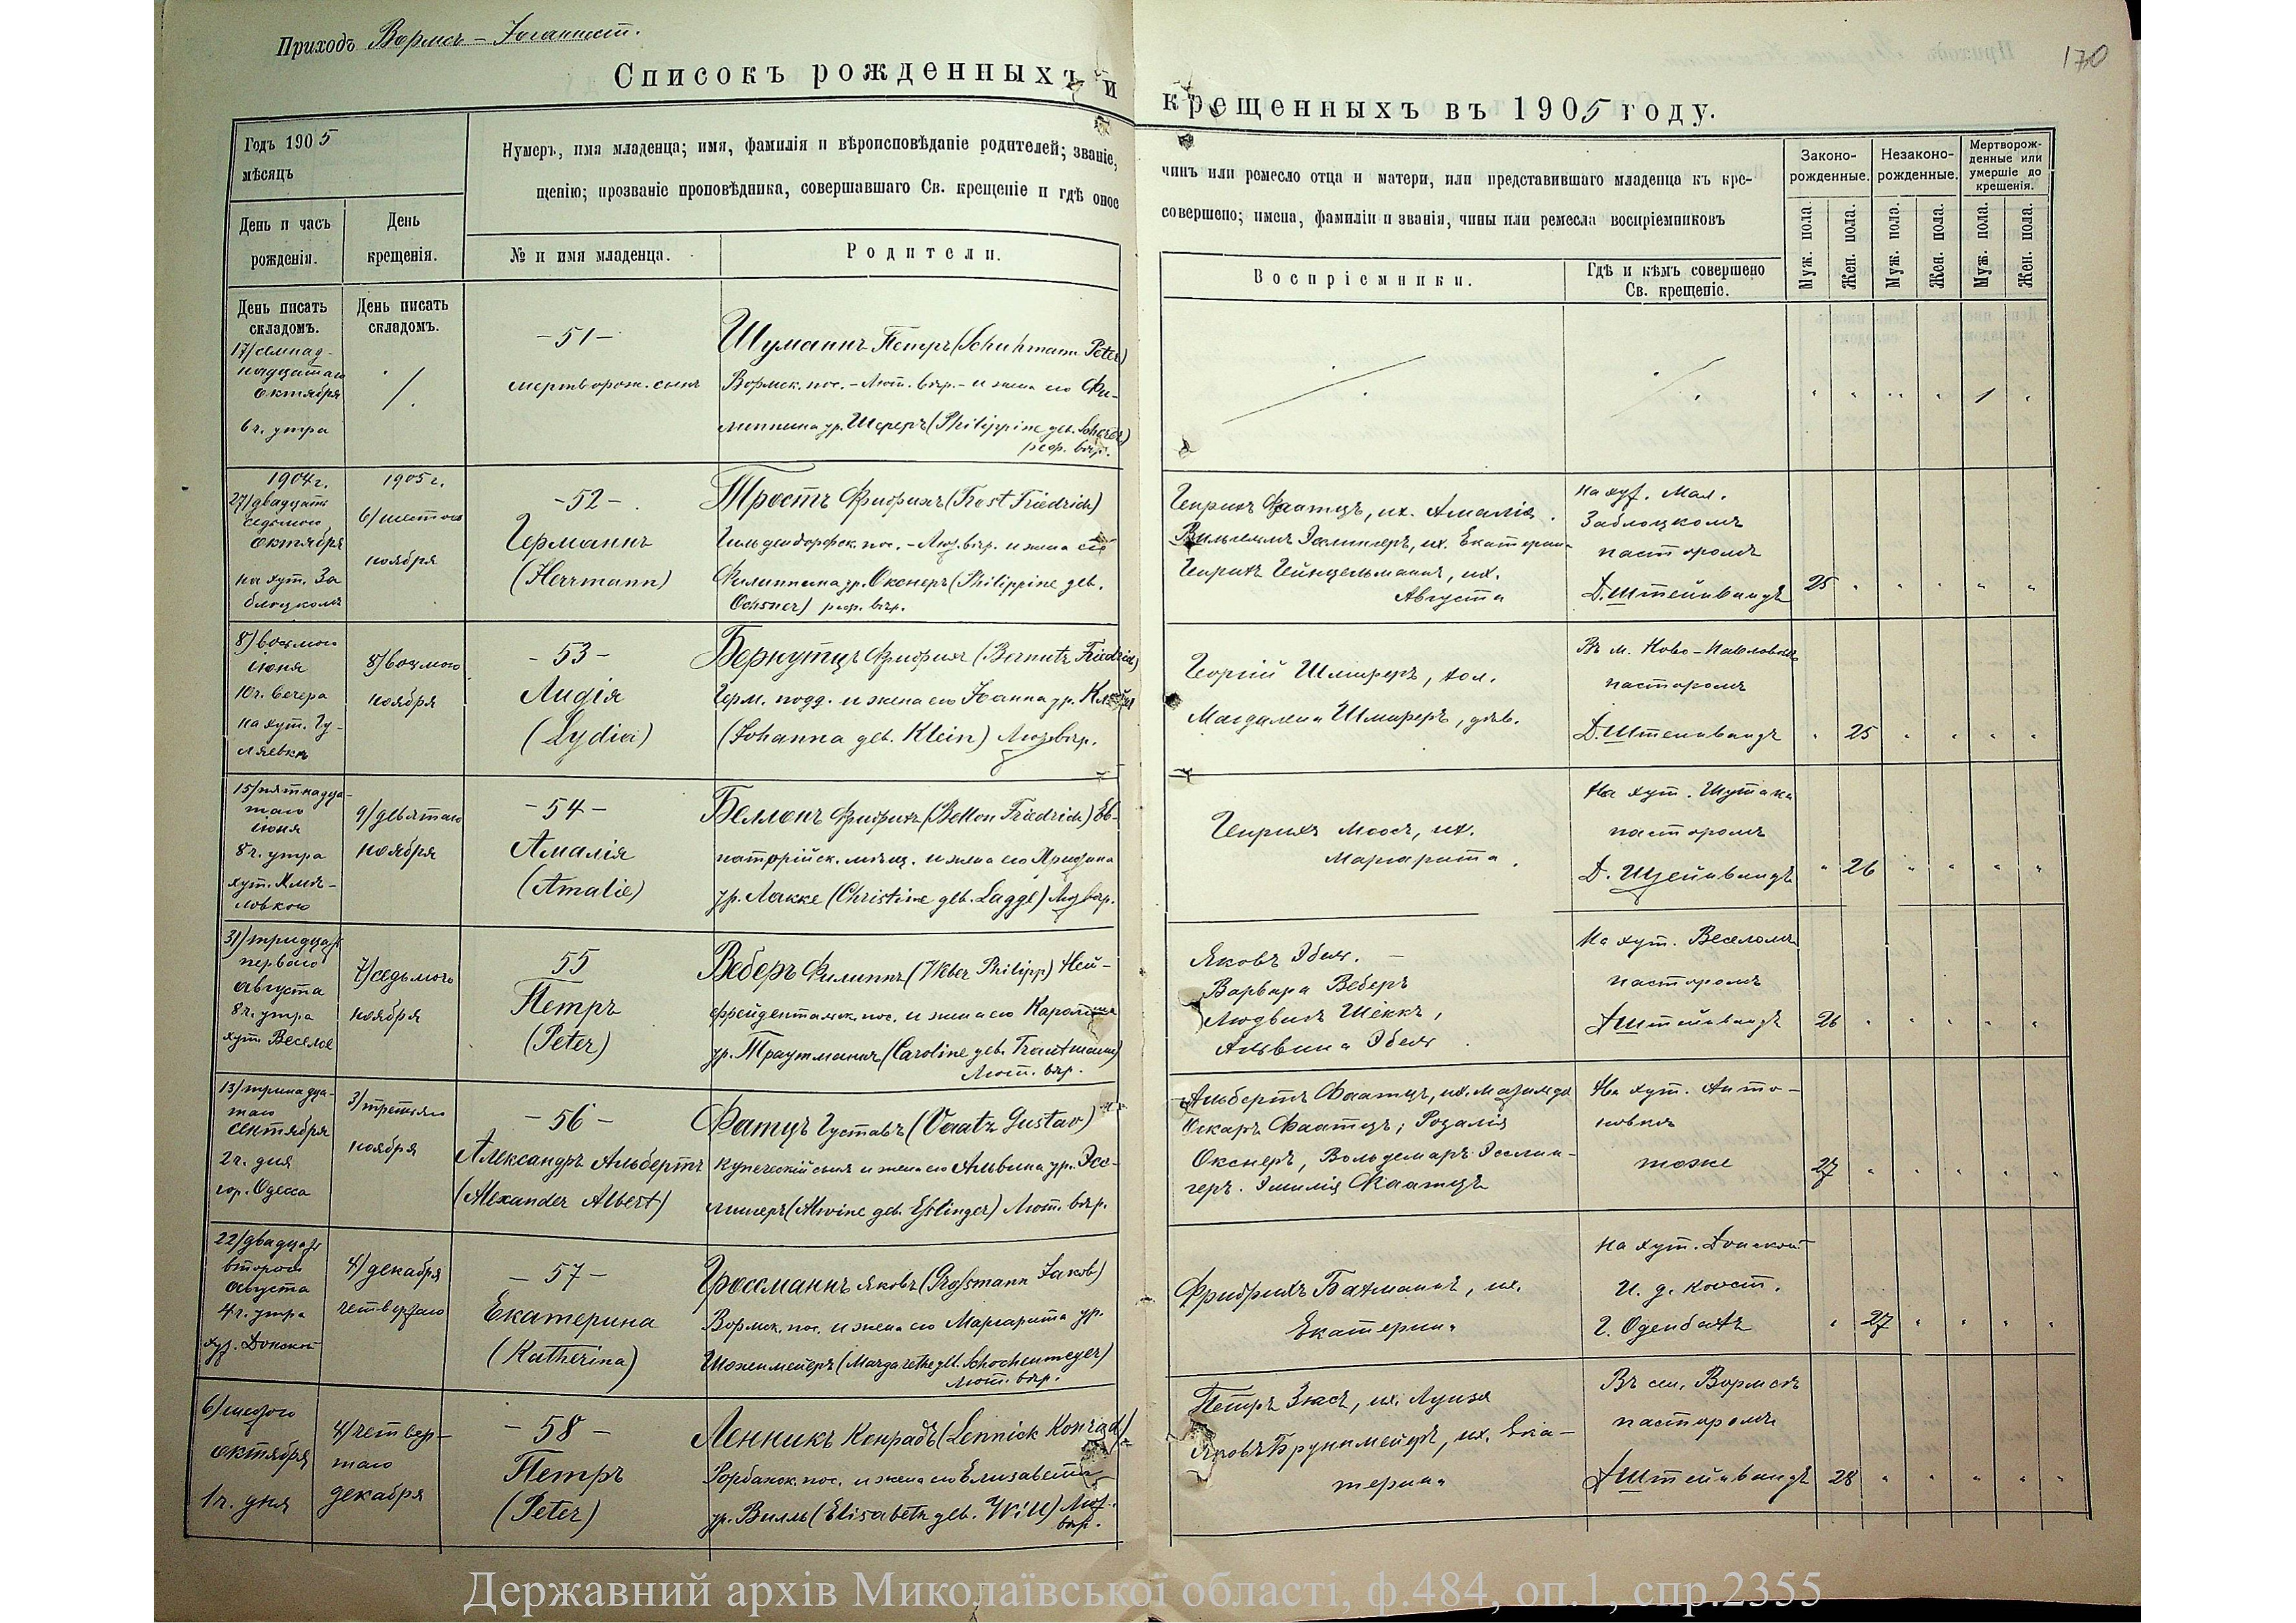 Приходъ Вормсъ-Іоганнест.
170
Списокъ рожденныхъ и крещенныхъ въ 1905 году.
Годъ 1905
мѣсяцъ
День и часъ
рожденія.
День
крещенія.
Нумеръ, имя младенца; имя, фамилія и вѣроисповѣданіе родителей; званіе,
чинъ или ремесло отца и матери, или представившаго младенца къ кре-
щенію; прозваніе проповѣдника, совершавшаго Св. крещеніе и гдѣ оное
совершено; имена, фамиліи и званія, чины или ремесла воспріемниковъ
№ и имя младенца.
Родители.
Воспріемники.
Гдѣ и кѣмъ совершено
Св. крещеніе.
Законо-
рожденные.
Незаконо-
рожденные.
Мертворож-
денные или
умершіе до
крещенія.
Муж. пола.
Жен. пола.
Муж. пола.
Жен. пола.
Муж. пола.
Жен. пола.
День писать
складомъ.
День писать
складомъ.
17/семнад-
надцатаго
октября
6 ч. утра
-51-
мертворож. сынъ
Шуманнъ Петръ (Schuhmann Peter)
Вормск. пос. - Лют. вѣр. - и жена его Фи-
липпина ур. Шереръ (Philippine geb. Scherer)
реф. вѣр.
1
1904 г.
27/двадцать
седьмого
октября
на хут. За
блоцкомъ
1905 г.
6/шестого
ноября
-52-
Германнъ
(Herrmann)
Тростъ Фридрихъ (Trost Friedrich)
Гильдендорфск. пос. - Лют. вѣр. и жена его
Филиппина ур. Окснеръ (Philippine geb.
Ochsner) реф. вѣр.
Генрихъ Фаатцъ, их. Амалія.
Вильгельмъ Эслингеръ, их. Екатерина
Генрихъ Гейнцельманнъ, их.
Августа
на хут. Мал.
Заблоцкомъ
пасторомъ
Д. Штейнвандъ
25
8/восьмого
іюня
10 ч. вечера
на хут. Гу-
ляевкѣ
8/восьмого
ноября
-53-
Лидія
(Lydia)
Бернутцъ Фридрихъ (Bernutz Friedrich)
Герм. подд. и жена его Іоанна ур. Клейнъ
(Johanna geb. Klein) Лют. вѣр.
Георгій Шмиреръ, хол.
Магдалена Шмиреръ, дѣв.
Въ м. Ново-Павловкѣ
пасторомъ
Д. Штейнвандъ
25
15/пятнадца-
таго
іюня
8 ч. утра
9/девятаго
ноября
-54-
Амалія
(Amalie)
Беллонъ Фридрихъ (Bellon Friedrich) Ев-
паторійск. мѣщ. и жена его Христина
ур. Лакке (Christine geb. Lagge) Лют. вѣр.
Генрихъ Моосъ, их.
Маргарита.
На хут. Шутака
пасторомъ
Д. Штейнвандъ
26
31/тридцать
перваго
августа
8 ч. утра
хут. Веселое
7/седьмого
ноября
55
Петръ
(Peter)
Веберъ Филиппъ (Weber Philipp) Ней-
фрейдентальск. пос. и жена его Каролина
ур. Траутманнъ (Caroline geb. Trautmann)
Лют. вѣр.
Яковъ Эбель. -
Варвара Веберъ
Людвигъ Шёккъ,
Альвина Эбель
На хут. Веселомъ
пасторомъ
Д Штейнвандъ
26
13/тринадца-
таго
сентября
2 ч. дня
гор. Одесса
3/третьяго
ноября
-56-
Александръ Альбертъ
(Alexander Albert)
Фатцъ Густавъ (Vaatz Gustav)
купеческій сынъ и жена его Альвина ур. Эсс-
лингеръ (Alwine geb. Eßlinger) Лют. вѣр.
Альбертъ Фаатцъ, их. Матильда
Оскаръ Фаатцъ, Розалія
Окснеръ, Вольдемаръ Эсслин-
геръ. Эмилія Фаатцъ
На хут. Анто-
новкѣ
тоже
27
22/двадцать
второго
августа
4 ч. утра
хут. Донской
4/декабря
четвертаго
-57-
Екатерина
(Katherina)
Гроссманнъ Яковъ (Großmann Jakob)
Вормск. пос. и жена его Маргарита ур.
Шохенмейеръ (Margarethe geb. Schochenmeyer)
Лют. вѣр.
Фридрихъ Бахманнъ, их.
Екатерина
На хут. Донской
и. д. кюст.
Г. Оденбахъ
27
6/шестого
октября
1 ч. дня
4/четвер-
таго
декабря
-58-
Петръ
(Peter)
Ленникъ Конрадъ (Lennick Konrad)
Рорбахск. пос. и жена его Елизавета
ур. Вилль (Elisabeth geb. Will) Лют.
вѣр.
Петръ Зюсъ, их. Луиза
Яковъ Бруннмейеръ, их. Ека-
терина
Въ сел. Вормсъ
пасторомъ
Д Штейнвандъ
28
Державний архів Миколаївської області, ф.484, оп.1, спр.2355